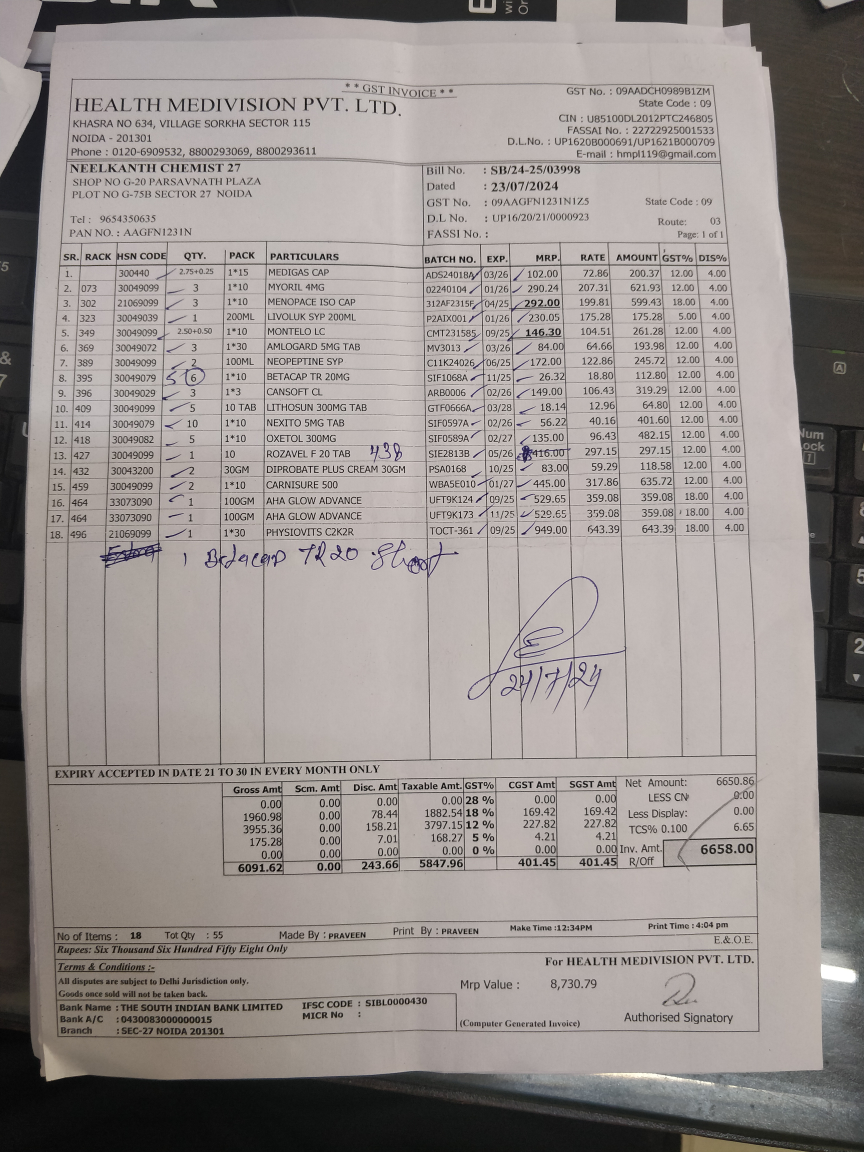 ** GST INVOICE **
HEALTH MEDIVISION PVT. LTD.
KHASRA NO 634, VILLAGE SORKHA SECTOR 115
NOIDA - 201301
Phone : 0120-6909532, 8800293069, 8800293611
GST No. : 09AADCH0989B1ZM
State Code : 09
CIN : U85100DL2012PTC246805
FASSAI No. : 22722925001533
D.L.No. : UP1620B000691/UP1621B000709
E-mail : hmpl119@gmail.com
NEELKANTH CHEMIST 27
SHOP NO G-20 PARSAVNATH PLAZA
PLOT NO G-75B SECTOR 27 NOIDA
Tel : 9654350635
PAN NO. : AAGFN1231N
Bill No. : SB/24-25/03998
Dated : 23/07/2024
GST No. : 09AAGFN1231N1Z5 State Code : 09
D.L No. : UP16/20/21/0000923
Route: 03
FASSI No. : Page: 1 of 1
SR. RACK HSN CODE QTY. PACK PARTICULARS BATCH NO. EXP. MRP. RATE AMOUNT GST% DIS%
1. 300440 2.75+0.25 1*15 MEDIGAS CAP ADS24018A 03/26 102.00 72.86 200.37 12.00 4.00
2. 073 30049099 3 1*10 MYORIL 4MG 02240104 01/26 290.24 207.31 621.93 12.00 4.00
3. 302 21069099 3 1*10 MENOPACE ISO CAP 312AF2315F 04/25 292.00 199.81 599.43 18.00 4.00
4. 323 30049039 1 200ML LIVOLUK SYP 200ML P2AIX001 01/26 230.05 175.28 175.28 5.00 4.00
5. 349 30049099 2.50+0.50 1*10 MONTELO LC CMT231585 09/25 146.30 104.51 261.28 12.00 4.00
6. 369 30049072 3 1*30 AMLOGARD 5MG TAB MV3013 03/26 84.00 64.66 193.98 12.00 4.00
7. 389 30049099 2 100ML NEOPEPTINE SYP C11K24026 06/25 172.00 122.86 245.72 12.00 4.00
8. 395 30049079 5 6 1*10 BETACAP TR 20MG SIF1068A 11/25 26.32 18.80 112.80 12.00 4.00
9. 396 30049029 3 1*3 CANSOFT CL ARB0006 02/26 149.00 106.43 319.29 12.00 4.00
10. 409 30049099 5 10 TAB LITHOSUN 300MG TAB GTF0666A 03/28 18.14 12.96 64.80 12.00 4.00
11. 414 30049079 10 1*10 NEXITO 5MG TAB SIF0597A 02/26 56.22 40.16 401.60 12.00 4.00
12. 418 30049082 5 1*10 OXETOL 300MG SIF0589A 02/27 135.00 96.43 482.15 12.00 4.00
13. 427 30049099 1 10 ROZAVEL F 20 TAB 438 SIE2813B 05/26 416.00 297.15 297.15 12.00 4.00
14. 432 30043200 2 30GM DIPROBATE PLUS CREAM 30GM PSA0168 10/25 83.00 59.29 118.58 12.00 4.00
15. 459 30049099 2 1*10 CARNISURE 500 WBA5E010 01/27 445.00 317.86 635.72 12.00 4.00
16. 464 33073090 1 100GM AHA GLOW ADVANCE UFT9K124 09/25 529.65 359.08 359.08 18.00 4.00
17. 464 33073090 1 100GM AHA GLOW ADVANCE UFT9K173 11/25 529.65 359.08 359.08 18.00 4.00
18. 496 21069099 1 1*30 PHYSIOVITS C2K2R TOCT-361 09/25 949.00 643.39 643.39 18.00 4.00
1 Betacap TR 20 Short
24/7/24
EXPIRY ACCEPTED IN DATE 21 TO 30 IN EVERY MONTH ONLY
Gross Amt Scm. Amt Disc. Amt Taxable Amt. GST% CGST Amt SGST Amt
0.00 0.00 0.00 0.00 28 % 0.00 0.00
1960.98 0.00 78.44 1882.54 18 % 169.42 169.42
3955.36 0.00 158.21 3797.15 12 % 227.82 227.82
175.28 0.00 7.01 168.27 5 % 4.21 4.21
0.00 0.00 0.00 0.00 0 % 0.00 0.00
6091.62 0.00 243.66 5847.96 401.45 401.45
Net Amount: 6650.86
LESS CN 0.00
Less Display: 0.00
TCS% 0.100 6.65
Inv. Amt. 6658.00
R/Off
No of Items : 18 Tot Qty : 55 Made By : PRAVEEN Print By : PRAVEEN Make Time :12:34PM Print Time : 4:04 pm
Rupees: Six Thousand Six Hundred Fifty Eight Only
E.& O.E.
Terms & Conditions :-
All disputes are subject to Delhi Jurisdiction only.
Goods once sold will not be taken back.
Bank Name : THE SOUTH INDIAN BANK LIMITED IFSC CODE : SIBL0000430
Bank A/C : 0430083000000015 MICR No :
Branch : SEC-27 NOIDA 201301
For HEALTH MEDIVISION PVT. LTD.
Mrp Value : 8,730.79
(Computer Generated Invoice)
Authorised Signatory
Num
Lock